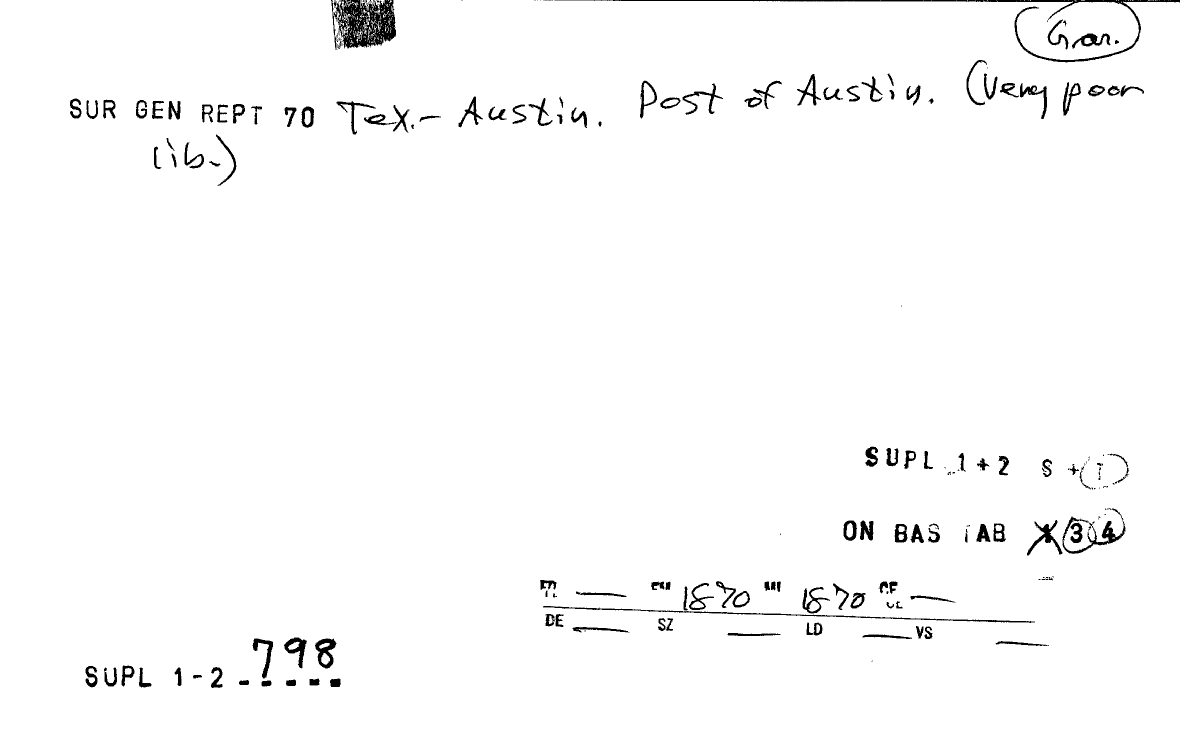 Gar.
SUR GEN REPT 70 Tex.- Austin. Post of Austin. (Very poor
lib.)
SUPL 1+2 S + I
ON BAS TAB 3 4
1870 1870
DE SZ LD VS
SUPL 1-2 798